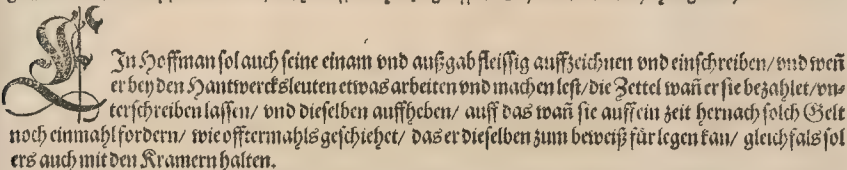 EJn Hoffman sol auch seine einam vnd außgab fleissig auffzeichnen vnd einschreiben/ vnd weñ
er bey den Hantwercksleuten etwas arbeiten vnd machen lest/ die Zettel wañ er sie bezahlet/ vn-
terschreiben lassen/ vnd dieselben auffheben/ auff das wañ sie auff ein zeit hernach solch Gelt
noch einmahl fordern/ wie offtermahls geschiehet/ das er dieselben zum beweiß für legen kan/ gleichfals sol
ers auch mit den Kramern halten.